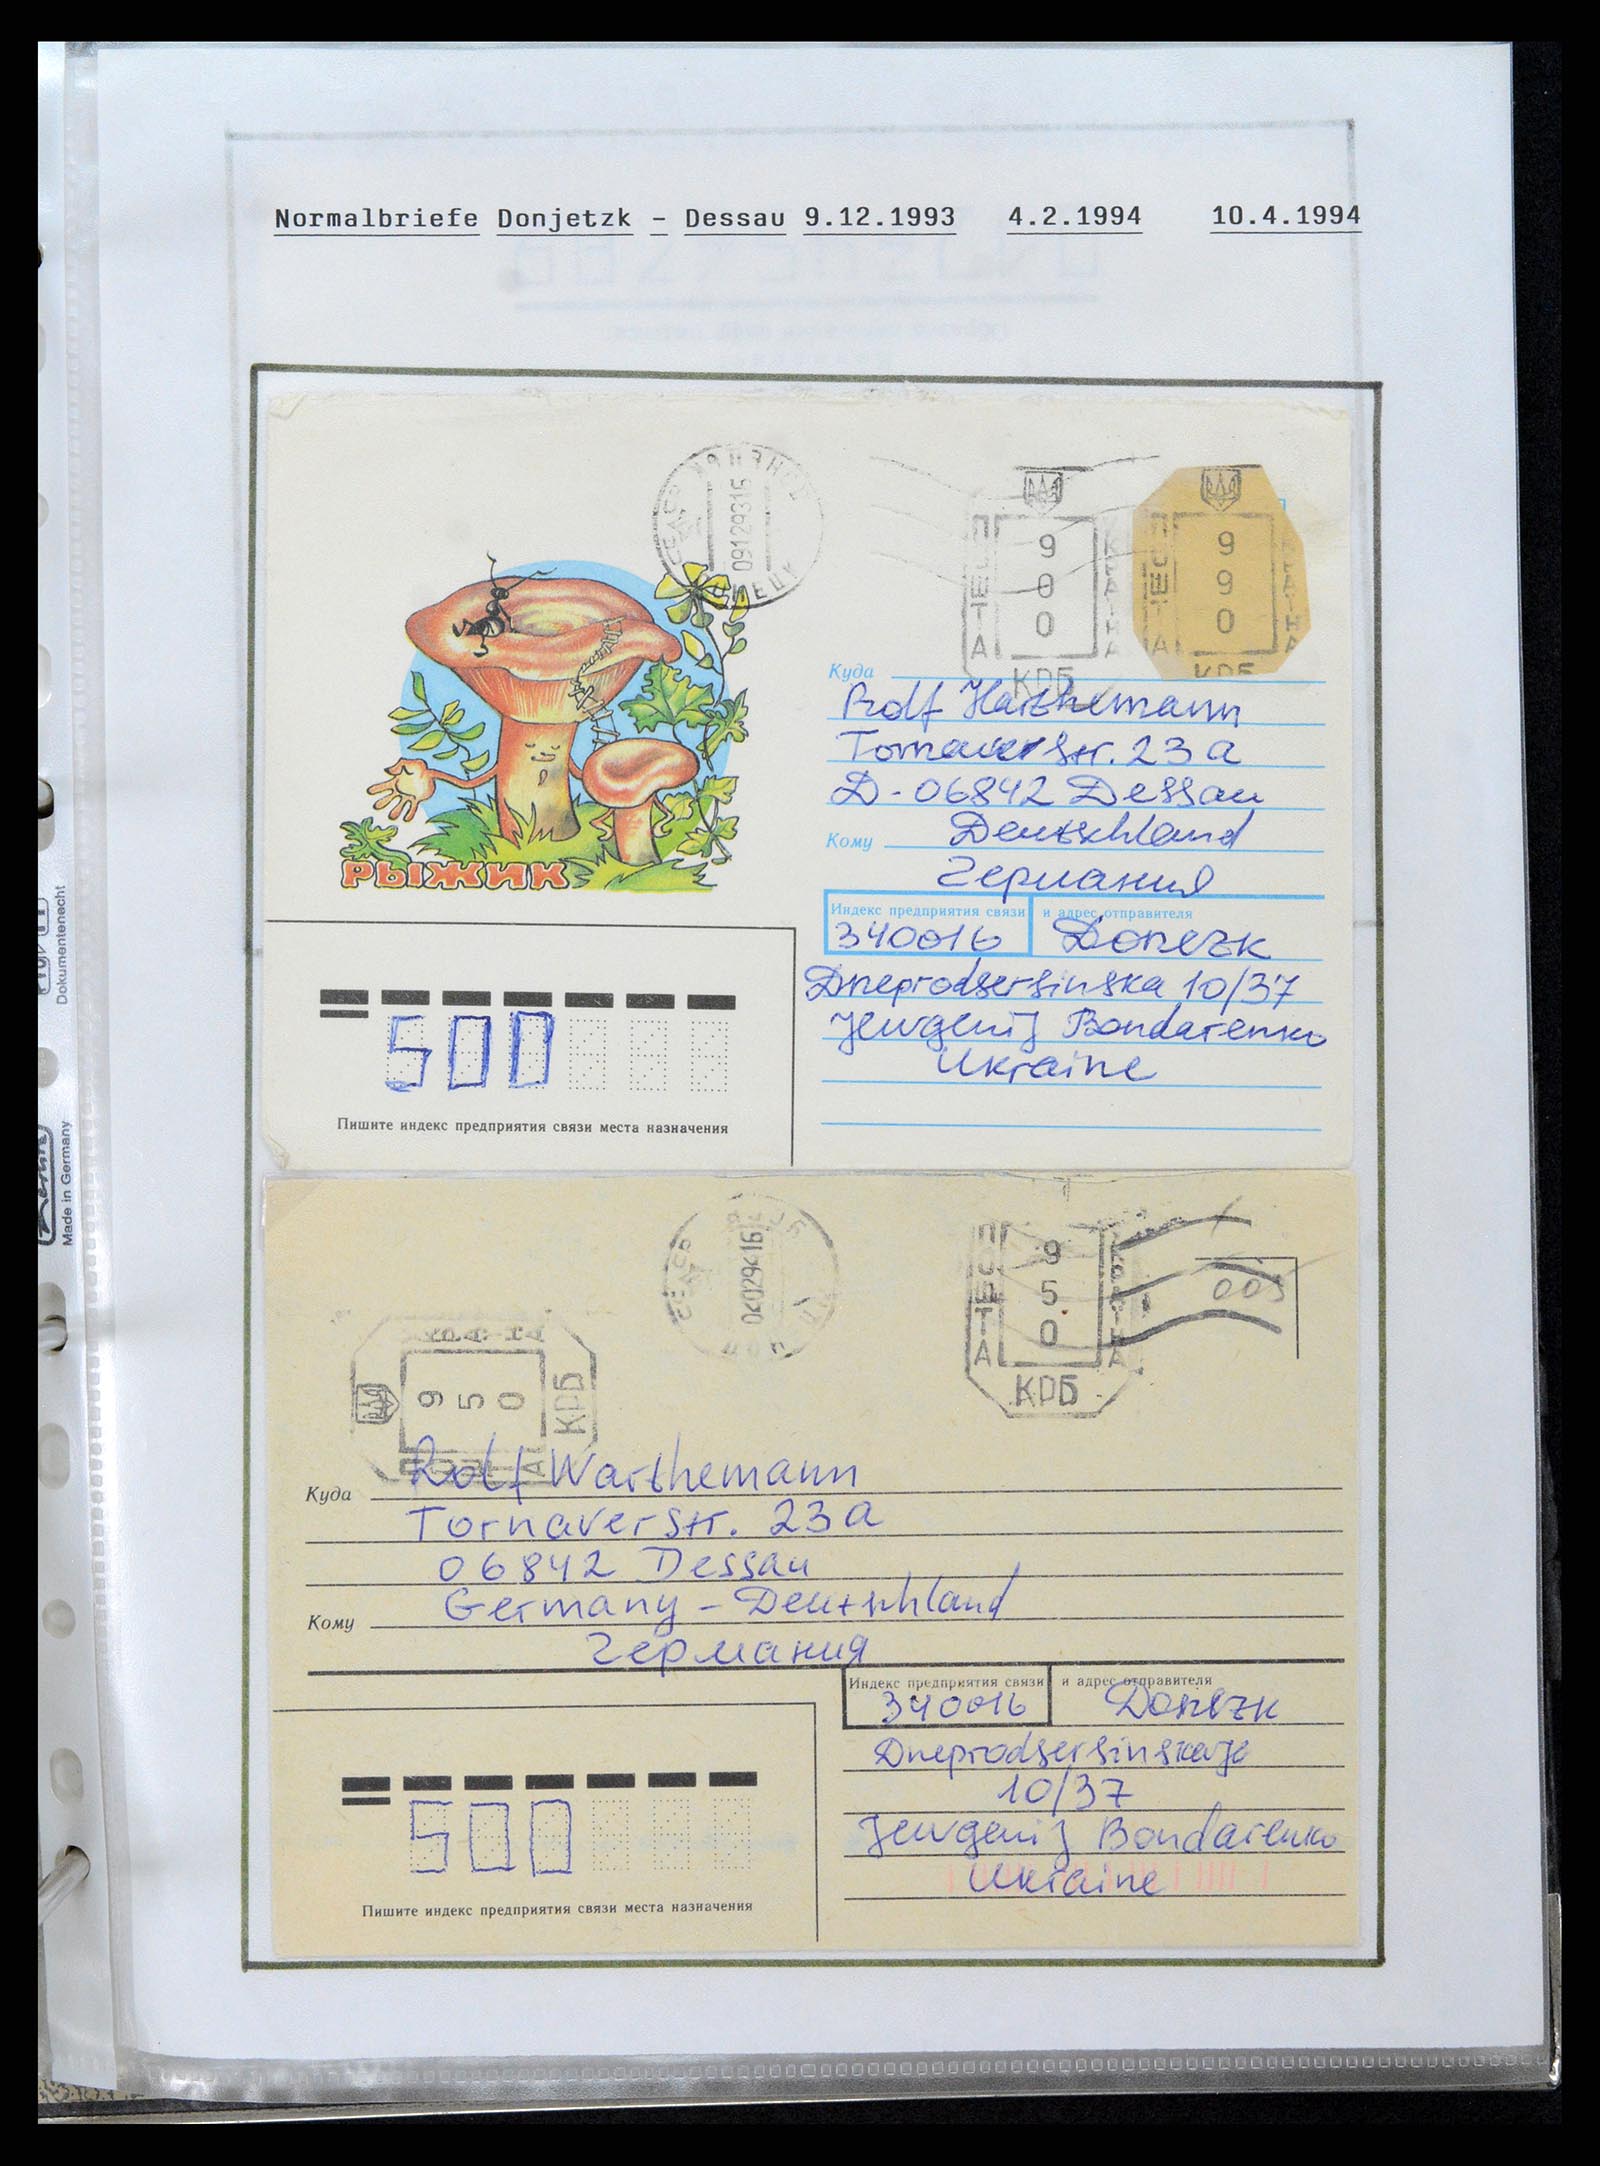 Normalbriefe Donjetzk – Dessau 9.12.1993 4.2.1994 10.4.1994
09129316
9
0
0
КРБ
9
9
0
КРБ
РЫЖИК
Куда
Rolf Warthemann
Tornauer Str. 23a
D-06842 Dessau
Кому
Deutschland
Германия
Индекс предприятия связи и адрес отправителя
340016 Donezk
Dneprodsersinska 10/37
Jewgenij Bondarenko
Ukraine
500
Пишите индекс предприятия связи места назначения
040294 16
ПОШТА
9
5
0
КРБ
005
9
5
0
КРБ
Куда
Rolf Warthemann
Tornauer Str. 23a
06842 Dessau
Germany – Deutschland
Кому
Германия
Индекс предприятия связи и адрес отправителя
340016 Donezk
Dneprodsersinskaje
10/37
Jewgenij Bondarenko
Ukraine
500
Пишите индекс предприятия связи места назначения
Dokumentenecht
Made in Germany